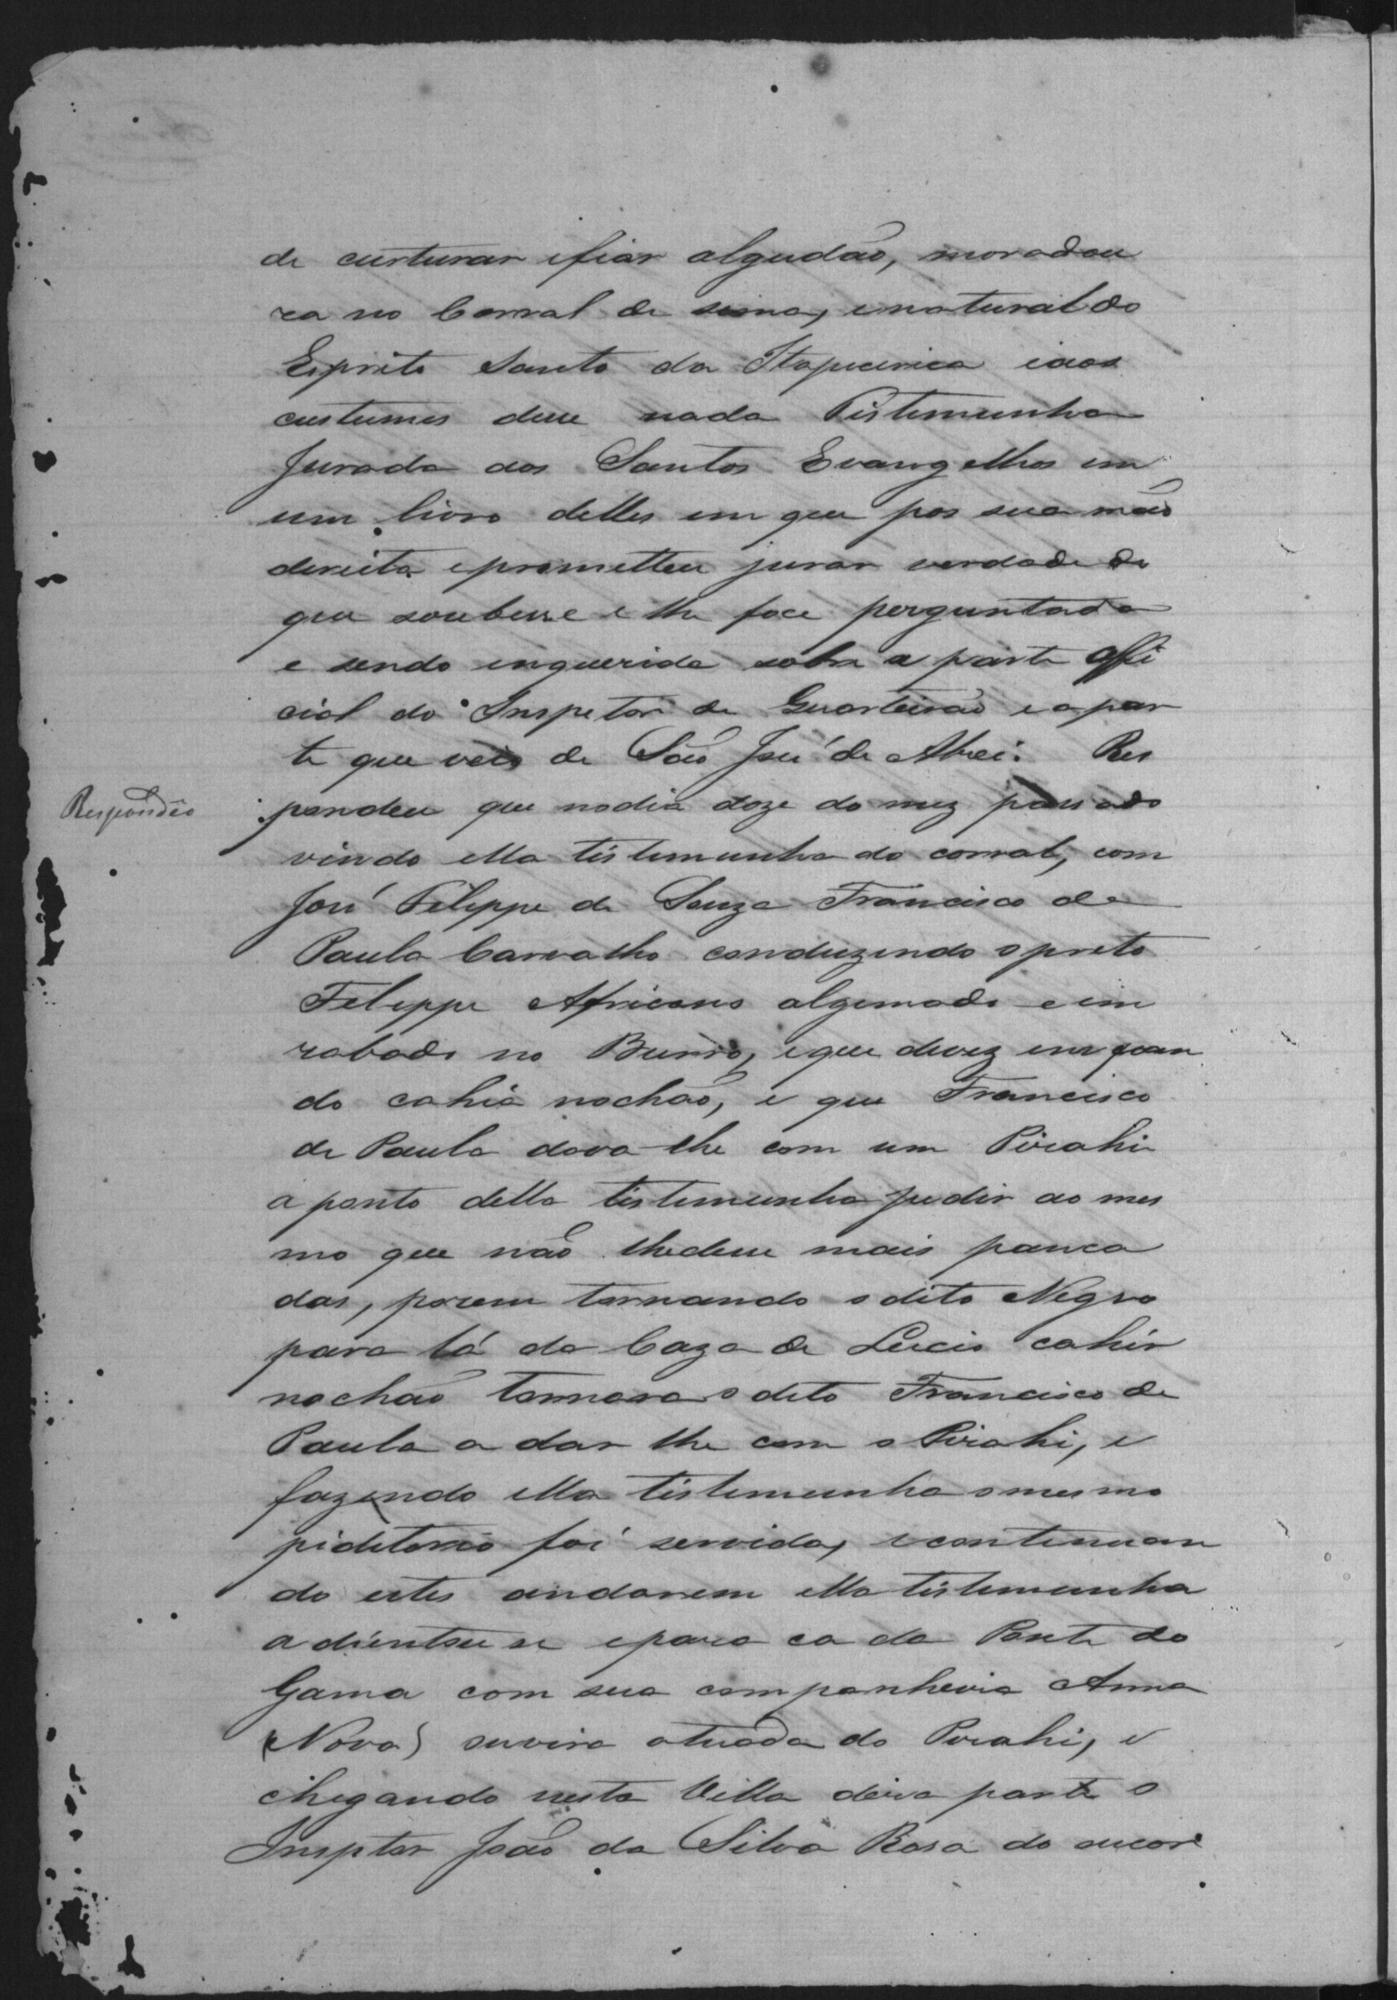 de custurar e fiar algudão, moradou
ra no Corral de sima, e natural do
Esprito Santo da Itapecirica e aos
custumes dice nada Tistimunha
Jurada aos Santos Evangelhos em
um livro delles em que pos sua mão
direita e prometteu jurar verdade do
que soubesse e lhe foce perguntada
e sendo enquerida sobre a parte Offi
cial do Inspetor de Quarteirão e a par
te que veio de São José de Abrei. Res
Respondêo
pondeu que no dia doze do mez passado
vindo ella tistimunha do corral, com
José Felippe de Souza Francisco de
Paula Carvalho conduzindo o preto
Felippe Africano algemado e em
rabado no Burro, e que de vez em quan
do cahia no chão, e que Francisco
de Paula dava-lhe com um Pirahi
a ponto della tistimunha pudir ao mes
mo que não lhe desse mais panca
das, porem tornando o dito Negro
para lá da Caza de Lucio cahir
no chão tornara o dito Francisco de
Paula a dar lhe com o Pirahi, e
fazendo ella tistimunha o mesmo
piditorio foi servida, e continuan
do estes andarem ella tistimunha
adientou se e para ca da Ponte do
Gama com sua companheira Anna
(Nova) ouvira atuada do Pirahi, e
chegando nesta Villa deira parte o
Insptor João da Silva Rosa do ucor